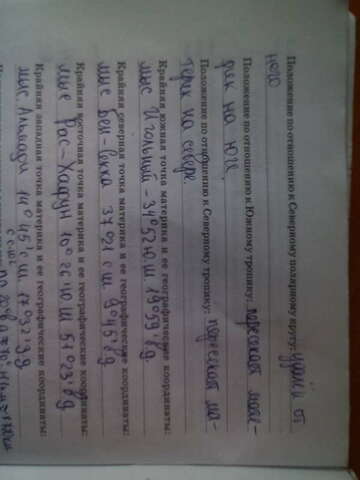 Положение по отношению к Северному полярному кругу: удалён от
него
Положение по отношению к Южному тропику: пересекает мате-
рик на юге.
Положение по отношению к Северному тропику: пересекает ма-
терик на севере
Крайняя южная точка материка и ее географические координаты:
мыс Игольный - 34°52' ю.ш 19°59' в.д.
Крайняя северная точка материка и ее географические координаты:
мыс Бен-Секка 37°21' с ш. 9°45' в д
Крайняя восточная точка материка и ее географические координаты:
мыс Рас-Хафун 10°26' ю ш 51°23' в д
Крайняя западная точка материка и ее географические координаты:
мыс Альмади 14°45' с ш. 17°33' з д